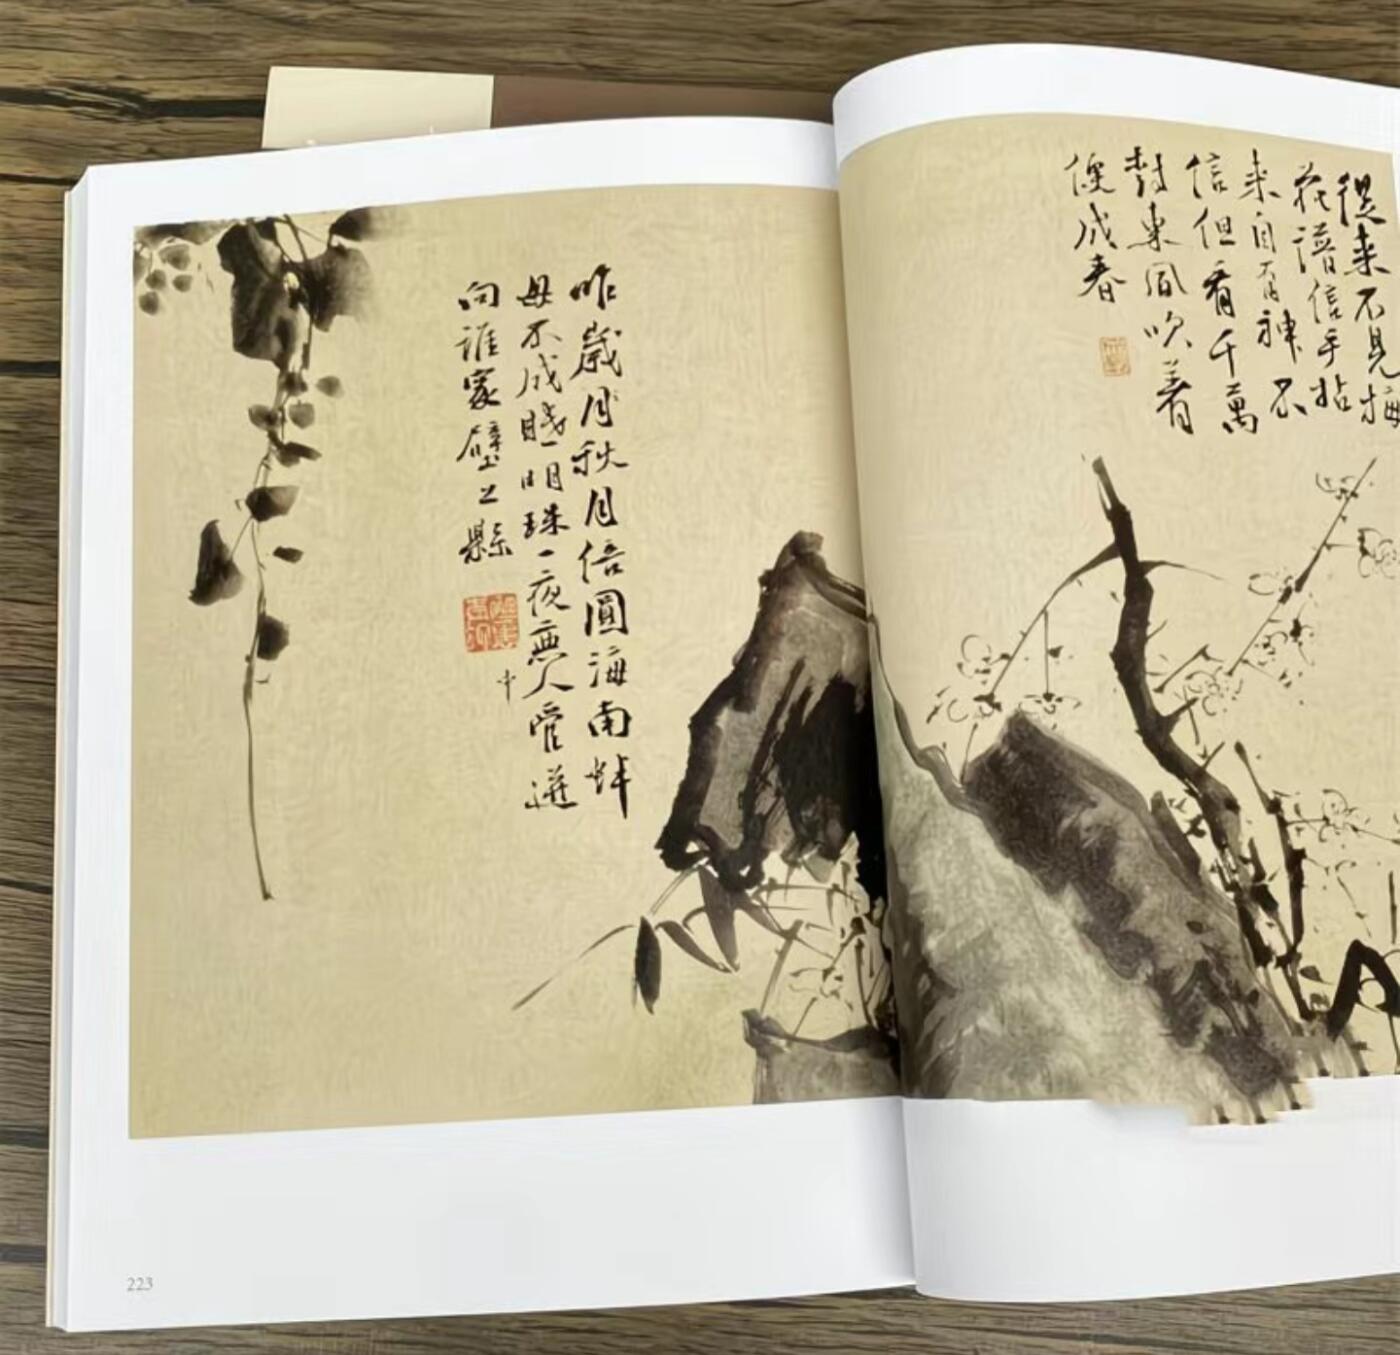 從來不見梅
花譜信手拈
來自有神不
信但看千萬
樹東風吹著
便成春
昨歲月秋月倍圓海南蚌
母不成眠明珠一夜無人管迸
向誰家壁上懸
中
223